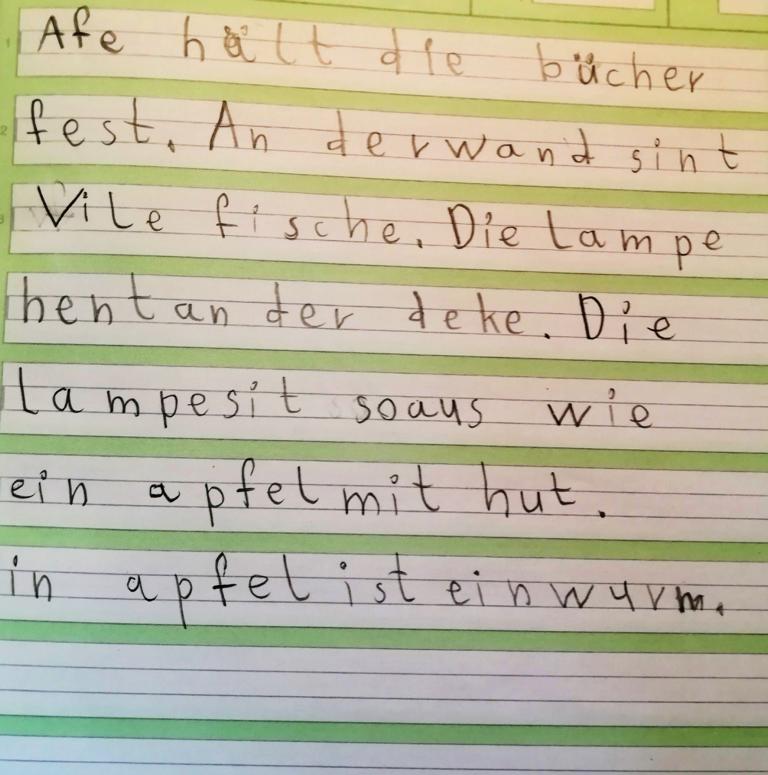 Afe hält die bücher
fest. An derwand sint
Vile fische. Die lampe
hent an der deke. Die
lampesit soaus wie
ein apfel mit hut.
in apfel ist ein wurm.